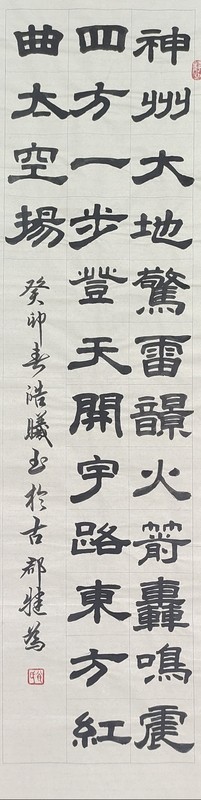 神州大地驚雷火箭轟鳴震
四方一步登天開宇路東方紅
曲太空揚
癸卯春浩曦書於古郡犍為